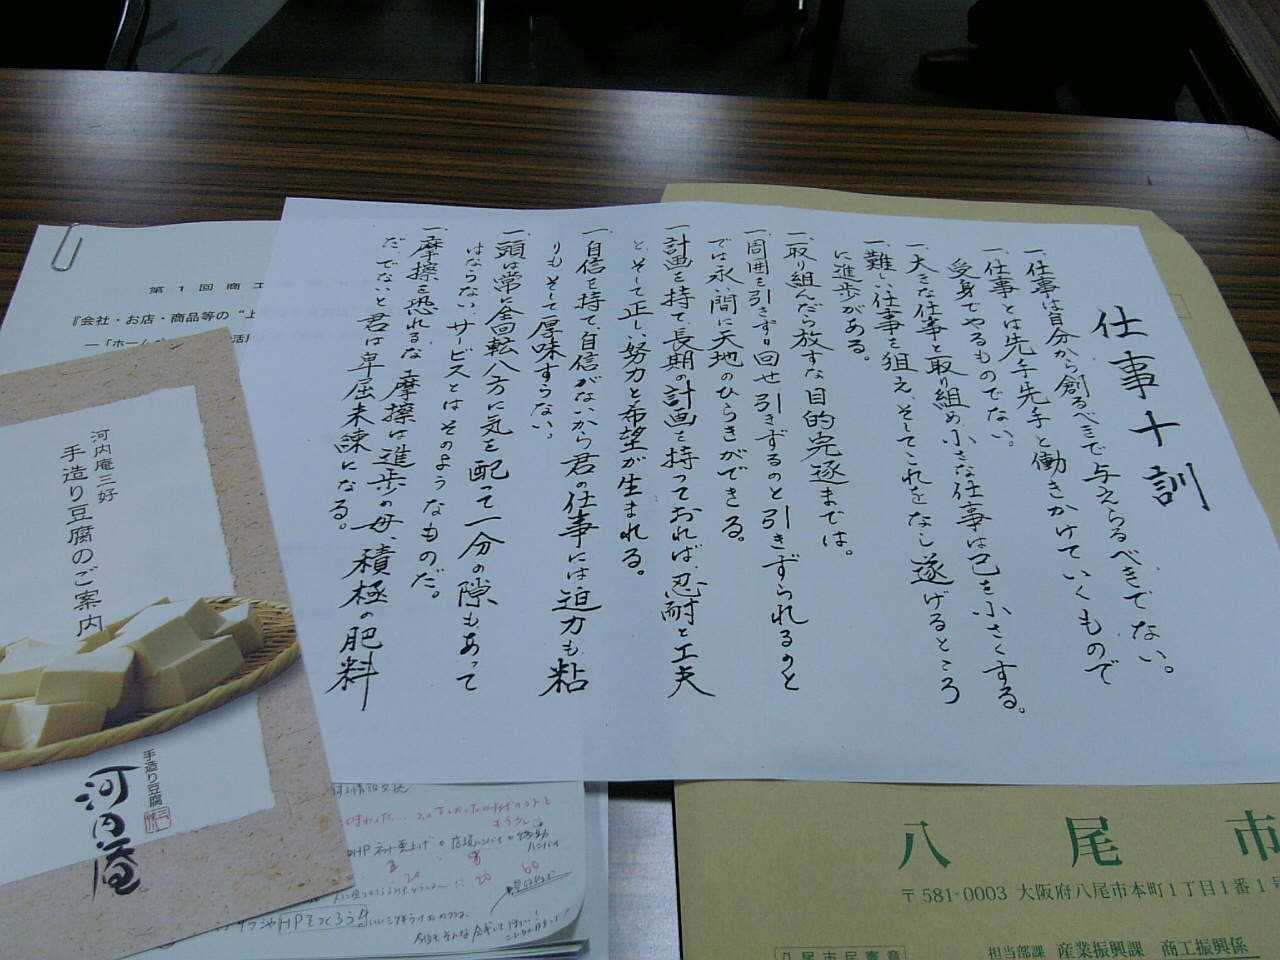 仕事十訓
一、仕事は自分から創るべきで与えらるべきでない。
一、仕事とは先手先手と働きかけていくもので
受身でやるものでない。
一、大きな仕事と取り組め小さな仕事は己を小さくする。
一、難しい仕事を狙え、そしてこれをなし遂げるところ
に進歩がある。
一、取り組んだら放すな目的完遂までは。
一、周囲を引きずり回せ引きずるのと引きずられるのと
では永い間に天地のひらきができる。
一、計画を持て、長期の計画を持っておれば、忍耐と工夫
と、そして正しい努力と希望が生まれる。
一、自信を持て、自信がないから君の仕事には迫力も粘
りもそして厚味すらない。
一、頭は常に全回転八方に気を配って一分の隙もあって
はならない、サービスとはそのようなものだ。
一、摩擦を恐れるな、摩擦は進歩の母、積極の肥料
だ、でないと君は卑屈未練になる。
第1回商工
『会社・お店・商品等の“上
河内庵三好
手造り豆腐のご案内
手造り豆腐
河内庵
八尾市
〒581-0003 大阪府八尾市本町1丁目1番1号
八尾市民憲章
担当部課 産業振興課 商工振興係